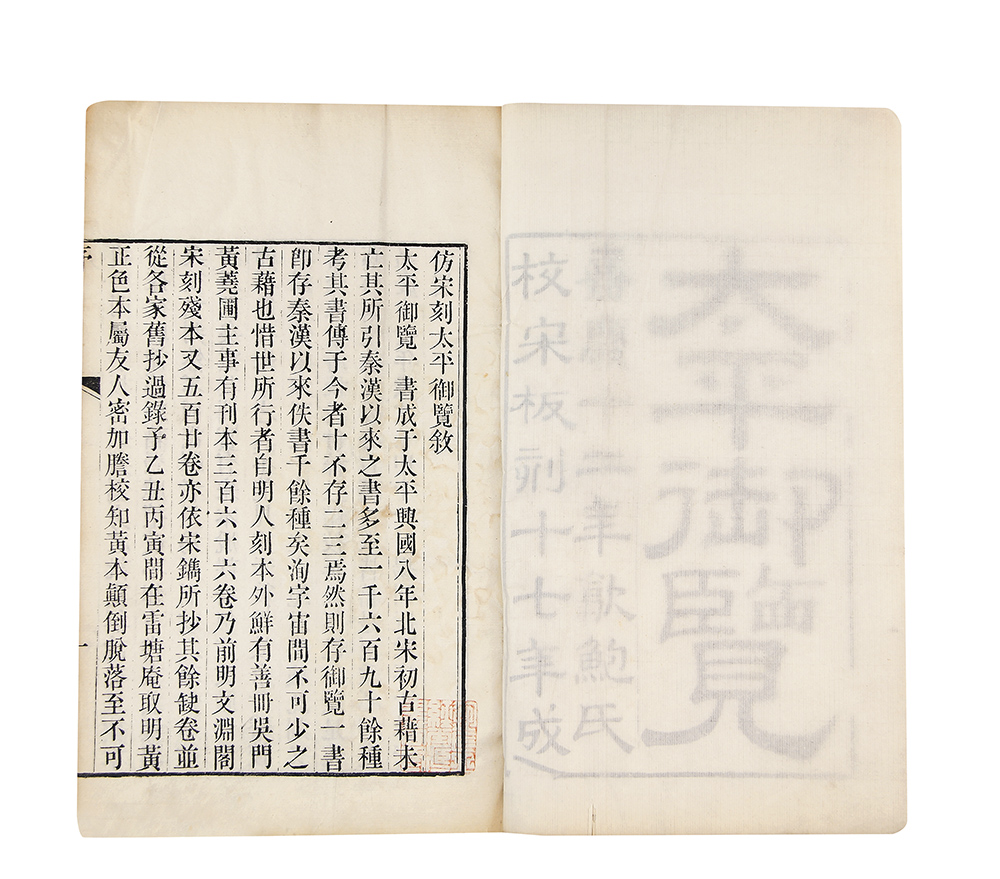 太平御覽
嘉慶十二年歙鮑氏
校宋板刻十七年成
仿宋刻太平御覽敘
太平御覽一書成于太平興國八年北宋初古藉未
亡其所引秦漢以來之書多至一千六百九十餘種
考其書傳于今者十不存二三焉然則存御覽一書
卽存秦漢以來佚書千餘種矣洵宇宙間不可少之
古藉也惜世所行者自明人刻本外鮮有善冊吳門
黃蕘圃主事有刊本三百六十六卷乃前明文淵閣
宋刻殘本又五百廿卷亦依宋鐫所抄其餘缺卷並
從各家舊抄過錄予乙丑丙寅間在雷塘庵取明黃
正色本屬友人密加謄校知黃本顛倒脫落至不可